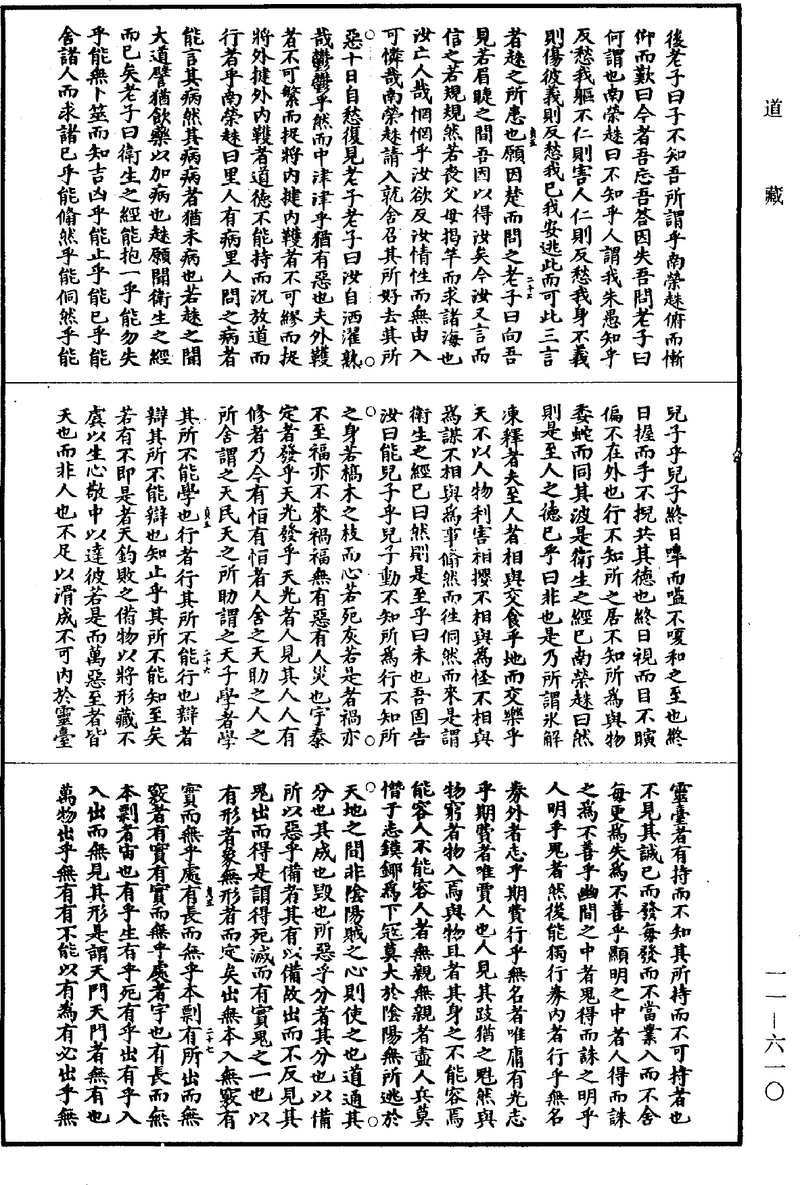 道藏
後老子曰子不知吾所謂乎南榮趎俯而慚
仰而歎曰今者吾忘吾答因失吾問老子曰
何謂也南榮趎曰不知乎人謂我朱愚知乎
反愁我軀不仁則害人仁則反愁我身不義
則傷彼義則反愁我已我安逃此而可此三言
者趎之所患也願因楚而問之老子曰向吾
見若眉睫之間吾因以得汝矣今汝又言而
信之若規規然若喪父母揭竿而求諸海也
汝亡人哉惘惘乎汝欲反汝情性而無由入
可憐哉南榮趎請入就舍召其所好去其所
惡十日自愁復見老子老子曰汝自洒濯熟
哉鬱鬱乎然而中津津乎猶有惡也夫外韄
者不可繁而捉將內揵內韄者不可繆而捉
將外揵外內韄者道德不能持而況放道而
行者乎南榮趎曰里人有病里人問之病者
能言其病然其病病者猶未病也若趎之聞
大道譬猶飲藥以加病也趎願聞衛生之經
而已矣老子曰衛生之經能抱一乎能勿失
乎能無卜筮而知吉凶乎能止乎能已乎能
舍諸人而求諸己乎能翛然乎能侗然乎能
兒子乎兒子終日嗥而嗌不嗄和之至也終
日握而手不掜共其德也終日視而目不瞚
偏不在外也行不知所之居不知所為與物
委蛇而同其波是衛生之經已南榮趎曰然
則是至人之德已乎曰非也是乃所謂氷解
凍釋者夫至人者相與交食乎地而交樂乎
天不以人物利害相攖不相與為怪不相與
為謀不相與為事翛然而往侗然而來是謂
衛生之經已曰然則是至乎曰未也吾固告
汝曰能兒子乎兒子動不知所為行不知所
之身若槁木之枝而心若死灰若是者禍亦
不至福亦不來禍福無有惡有人災也宇泰
定者發乎天光發乎天光者人見其人人有
修者乃今有恒有恒者人舍之天助之人之
所舍謂之天民天之所助謂之天子學者學
二十六
其所不能學也行者行其所不能行也辯者
辯其所不能辯也知止乎其所不能知至矣
若有不即是者天鈞敗之備物以將形藏不
虞以生心敬中以達彼若是而萬惡至者皆
天也而非人也不足以滑成不可內於靈臺
靈臺者有持而不知其所持而不可持者也
不見其誠己而發每發而不當業入而不舍
每更為失為不善乎顯明之中者人得而誅
之為不善乎幽間之中者鬼得而誅之明乎
人明乎鬼者然後能獨行券內者行乎無名
券外者志乎期費行乎無名者唯庸有光志
乎期費者唯賈人也人見其跂猶之魁然與
物窮者物入焉與物且者其身之不能容焉
能容人不能容人者無親無親者盡人兵莫
憯于志鏌鋣為下寇莫大於陰陽無所逃於
天地之間非陰陽賊之心則使之也道通其
分也其成也毀也所惡乎分者其分也以備
所以惡乎備者其有以備故出而不反見其
鬼出而得是謂得死滅而有實鬼之一也以
有形者象無形者而定矣出無本入無竅有
二十七
實而無乎處有長而無乎本剽有所出而無
竅者有實有實而無乎處者宇也有長而無
本剽者宙也有乎生有乎死有乎出有乎入
入出而無見其形是謂天門天門者無有也
萬物出乎無有有不能以有為有必出乎無
一一—六一〇